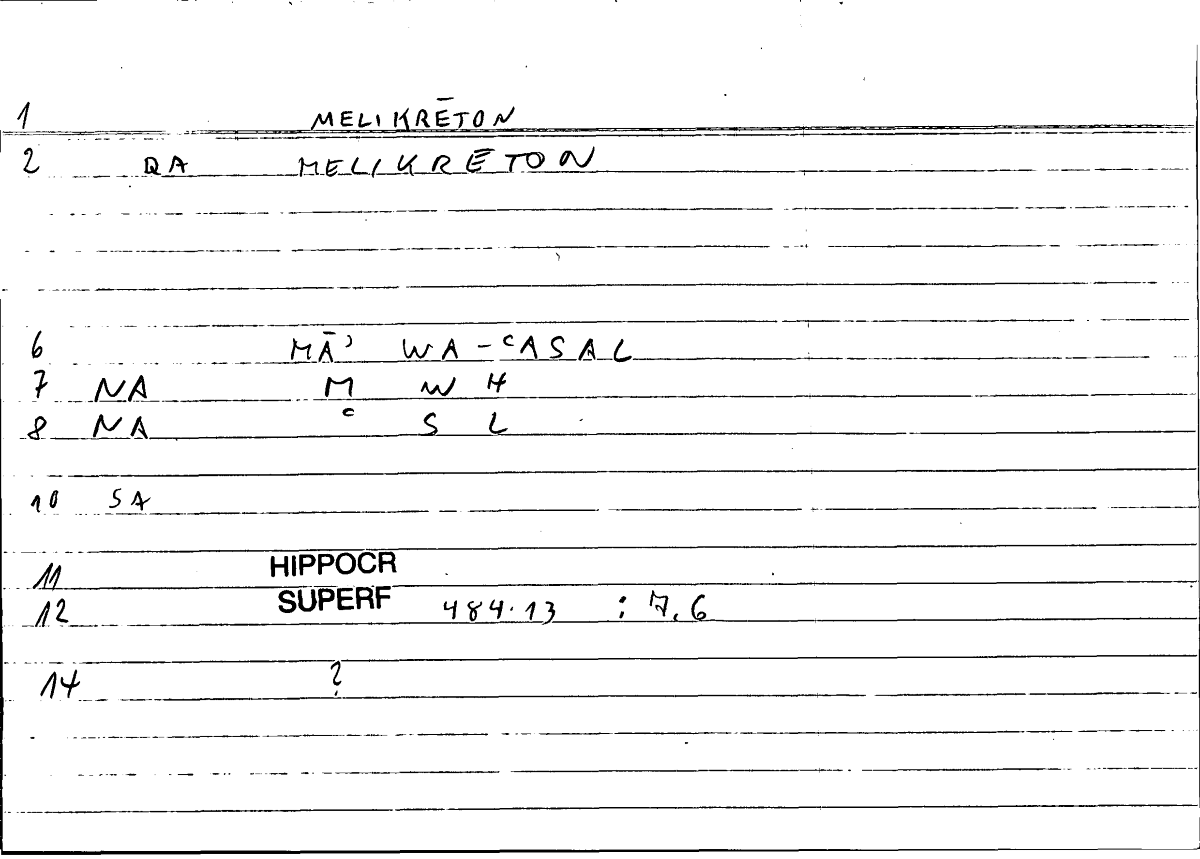 1 MELIKRĒTON
2 QA MELIKRĒTON
6 MĀʾ WA-ʿASAL
7 NA M W H
8 NA ʿ S L
10 SA
11 HIPPOCR
12 SUPERF 484.13 : 7.6
14 ?